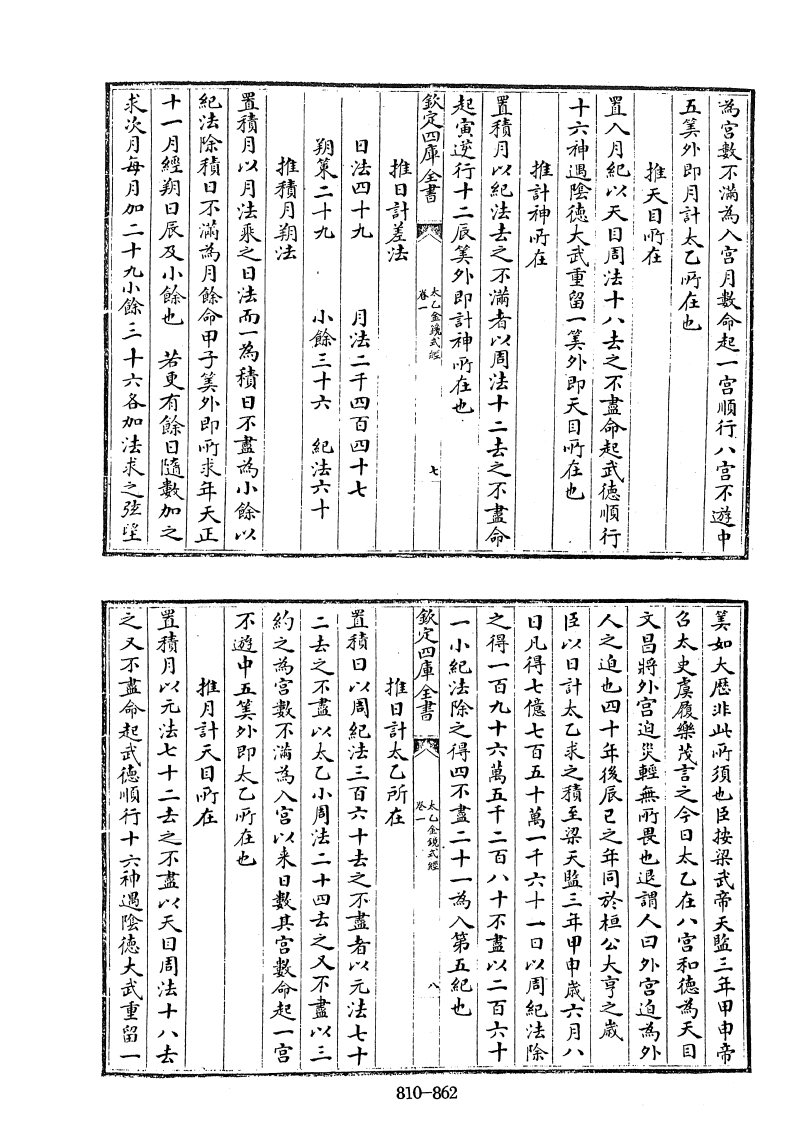 為宫數不滿為入宫月數命起一宫順行八宫不遊中
五筭外即月計太乙所在也
推天目所在
置入月紀以天目周法十八去之不盡命起武德順行
十六神遇陰德大武重留一筭外即天目所在也
推計神所在
置積月以紀法去之不滿者以周法十二去之不盡命
起寅逆行十二辰筭外即計神所在也
欽定四庫全書
太乙金鏡式經
卷一
七
推日計差法
日法四十九　月法二千四百四十七
朔策二十九　小餘三十六　紀法六十
推積月朔法
置積月以月法乘之日法而一為積日不盡為小餘以
紀法除積日不滿為月餘命甲子筭外即所求年天正
十一月經朔日辰及小餘也　若更有餘日隨數加之
求次月每月加二十九小餘三十六各加法求之弦望
筭如大厯非此所須也臣按梁武帝天監三年甲申帝
召太史虞履樂茂言之今日太乙在八宫和德為天目
文昌將外宫迫災輕無所畏也退謂人曰外宫迫為外
人之迫也四十年後辰巳之年同於桓公大亨之歲
臣以日計太乙求之積至梁天監三年甲申歲六月八
日凡得七億七百五十萬一千六十一日以周紀法除
之得一百九十六萬五千二百八十不盡以二百六十
一小紀法除之得四不盡二十一為入第五紀也
欽定四庫全書
太乙金鏡式經
卷一
八
推日計太乙所在
置積日以周紀法三百六十去之不盡者以元法七十
二去之不盡以太乙小周法二十四去之又不盡以三
約之為宫數不滿為入宫以来日數其宫數命起一宫
不遊中五筭外即太乙所在也
推月計天目所在
置積月以元法七十二去之不盡以天目周法十八去
之又不盡命起武德順行十六神遇陰德大武重留一
810-862